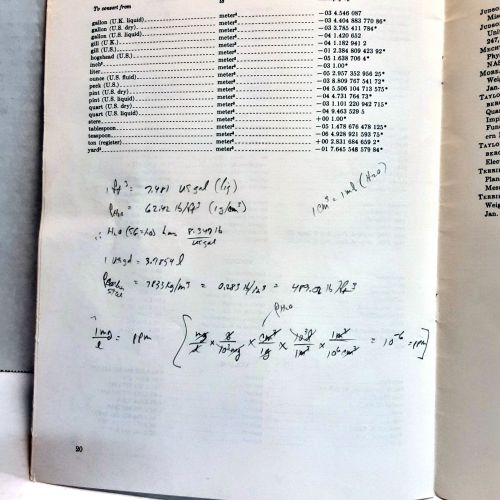 To convert from to
gallon (U.K. liquid) meter³ −03 4.546 087
gallon (U.S. dry) meter³ −03 4.404 883 770 86*
gallon (U.S. liquid) meter³ −03 3.785 411 784*
gill (U.K.) meter³ −04 1.420 652
gill (U.S.) meter³ −04 1.182 941 2
hogshead (U.S.) meter³ −01 2.384 809 423 92*
inch³ meter³ −05 1.638 706 4*
liter meter³ −03 1.00*
ounce (U.S. fluid) meter³ −05 2.957 352 956 25*
peck (U.S.) meter³ −03 8.809 767 541 72*
pint (U.S. dry) meter³ −04 5.506 104 713 575*
pint (U.S. liquid) meter³ −04 4.731 764 73*
quart (U.S. dry) meter³ −03 1.101 220 942 715*
quart (U.S. liquid) meter³ −04 9.463 529 5
stere meter³ +00 1.00*
tablespoon meter³ −05 1.478 676 478 125*
teaspoon meter³ −06 4.928 921 593 75*
ton (register) meter³ +00 2.831 684 659 2*
yard³ meter³ −01 7.645 548 579 84*
1 ft³ = 7.481 US gal (liq)
1 cm³ = 1 ml (H₂O)
ρH₂O = 62.42 lb/ft³ (1 g/cm³)
∴ H₂O has 8.347 lb/US gal
1 US gal = 3.7854 l
= 7833 kg/m³ = 0.283 lb/in³ = 489.02 lb/ft³
ρH₂O
1 mg/l = ppm [ mg/l × g/10³ mg × cm³/1g × 10³ l/1m³ × 1m³/10⁶ cm³ = 10⁻⁶ = ppm ]
20
JUDSO
247,
Phy
NA
Wei
Jan.
TAYLO
BERG
Qua
Imp
Fun
ern
TAYLO
BERG
Elec
TERRIE
Plan
Mea
TERRIE
Weig
Jan.